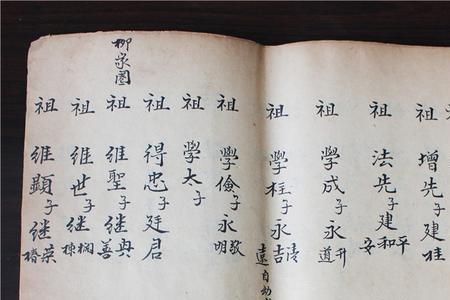 祖增先子建桂
祖法先子建平和安
祖學成子永升道
祖學柱子永清吉遠自幼
祖學儉子永敬明
祖學太子
祖得忠子廷君
祖維聖子繼典善
祖維世子繼棟
祖維顯子繼榮椿
柳家園